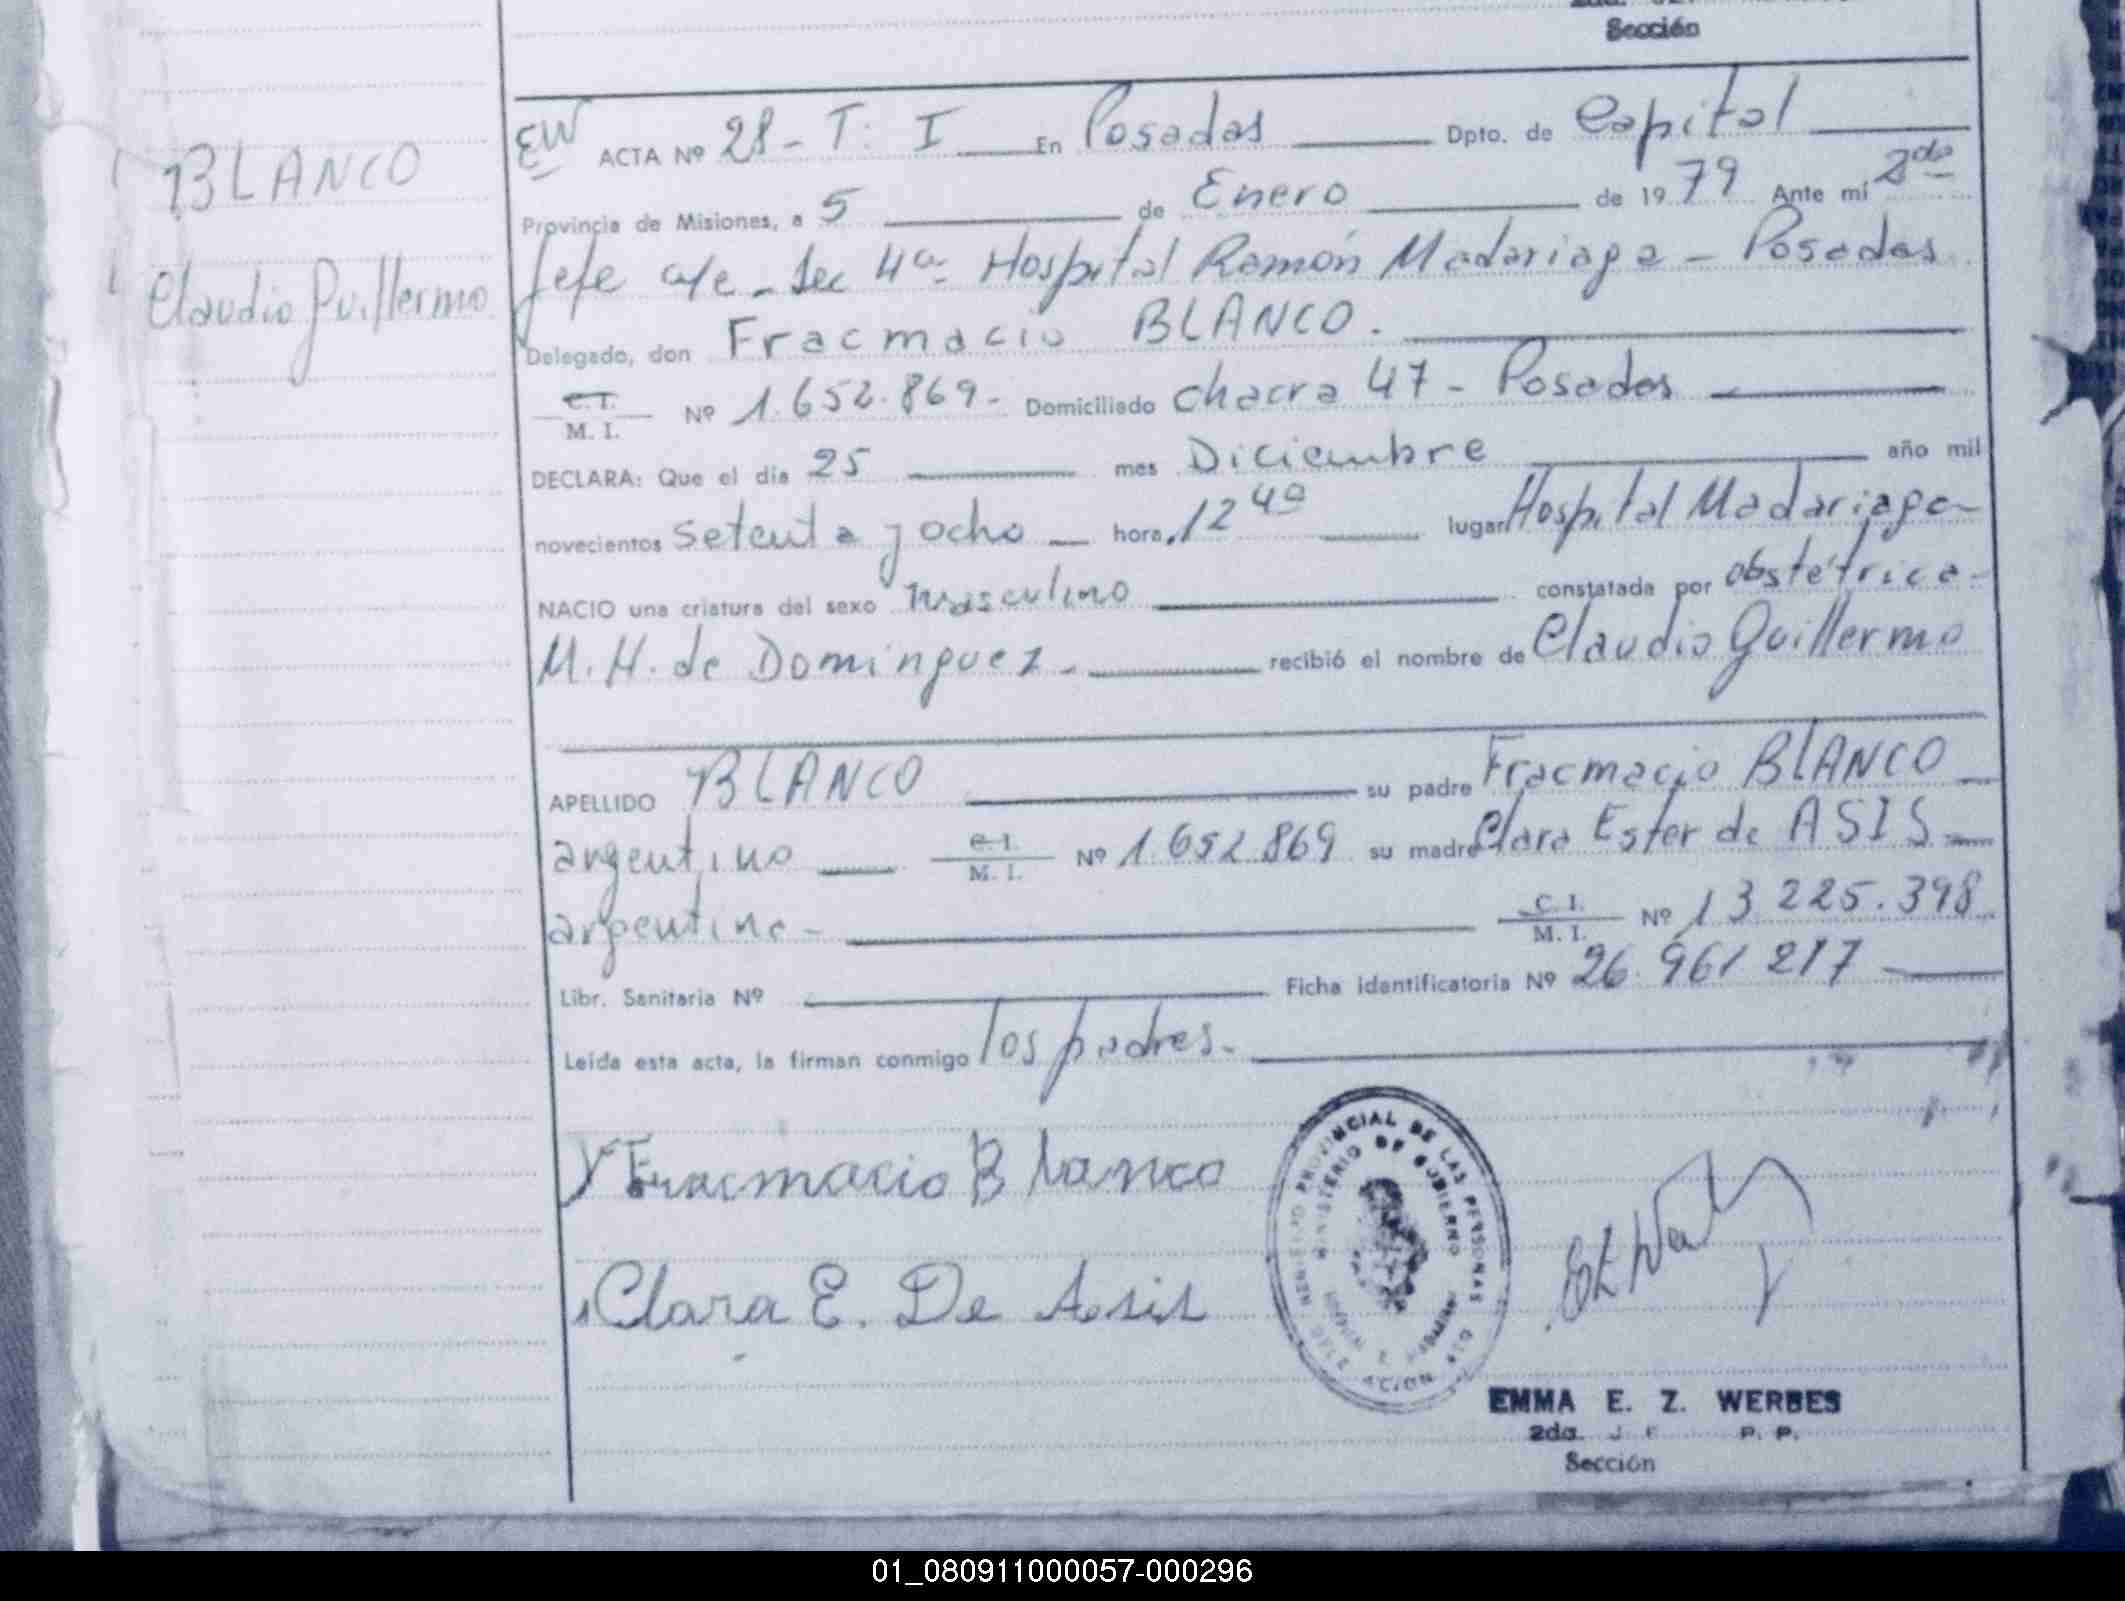 Sección
BLANCO
Claudio Guillermo
EW ACTA Nº 28 - T: I En Posadas Dpto. de Capital
Provincia de Misiones, a 5 de Enero de 1979 Ante mi 2da
Jefe a/c - Sec 4a Hospital Ramón Madariaga - Posadas
Delegado, don Fracmacio BLANCO.
C.I. / M. I. Nº 1.652.869 - Domiciliado chacra 47 - Posadas
DECLARA: Que el día 25 mes Diciembre año mil
novecientos setenta y ocho hora 12 40 lugar Hospital Madariaga -
NACIO una criatura del sexo masculino constatada por obstétrica -
M. H. de Domínguez - recibió el nombre de Claudio Guillermo
APELLIDO BLANCO su padre Fracmacio BLANCO
argentino C.I. / M. I. Nº 1.652.869 su madre Clara Ester de ASIS
argentina - C. I. / M. I. Nº 13.225.398
Libr. Sanitaria Nº Ficha identificatoria Nº 26.961 217
Leída esta acta, la firman conmigo los padres.
Fracmacio Blanco
Clara E. De Asis
PROVINCIAL DE LAS PERSONAS
MINISTERIO DE GOBIERNO
EMMA E. Z. WERBES
2da. J. P. P.
Sección
01_080911000057-000296